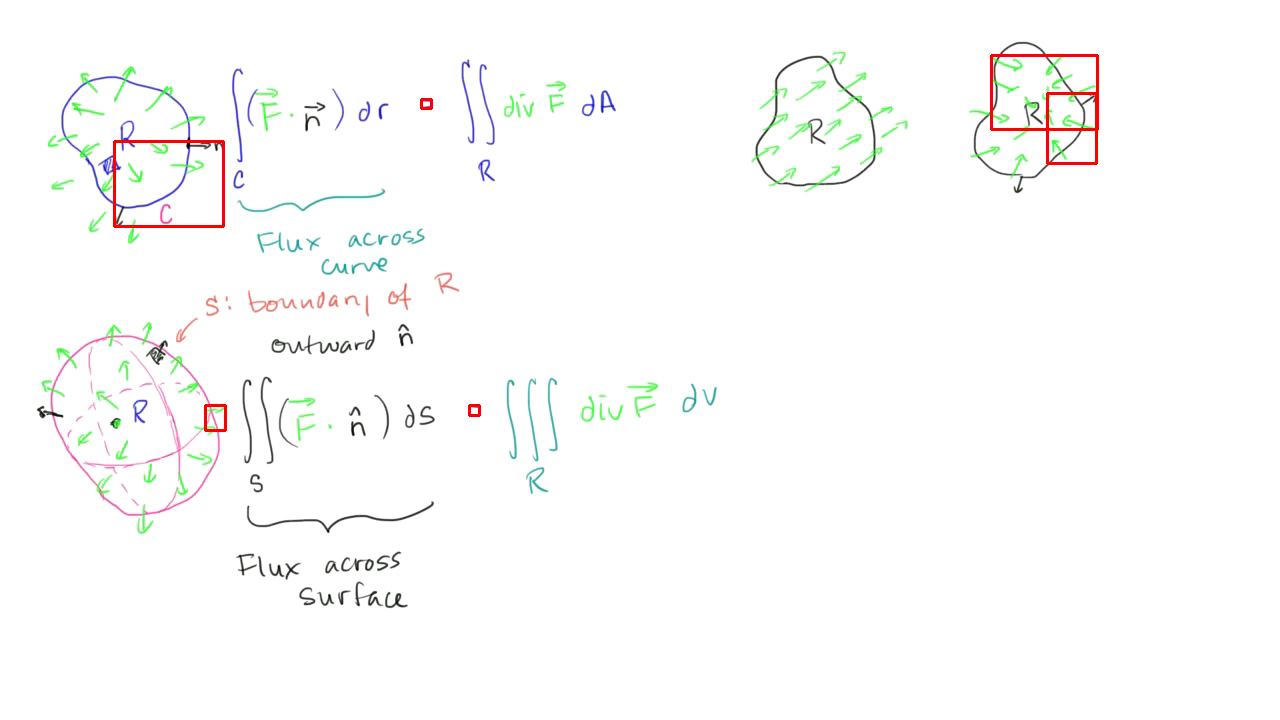 R
n
C
∫ (F⃗ · n⃗) dr
C
∬ div F⃗ dA
R
Flux across
curve
R
R
S: boundary of R
outward n̂
R
∬ (F⃗ · n̂) dS
S
∭ div F⃗ dV
R
Flux across
surface